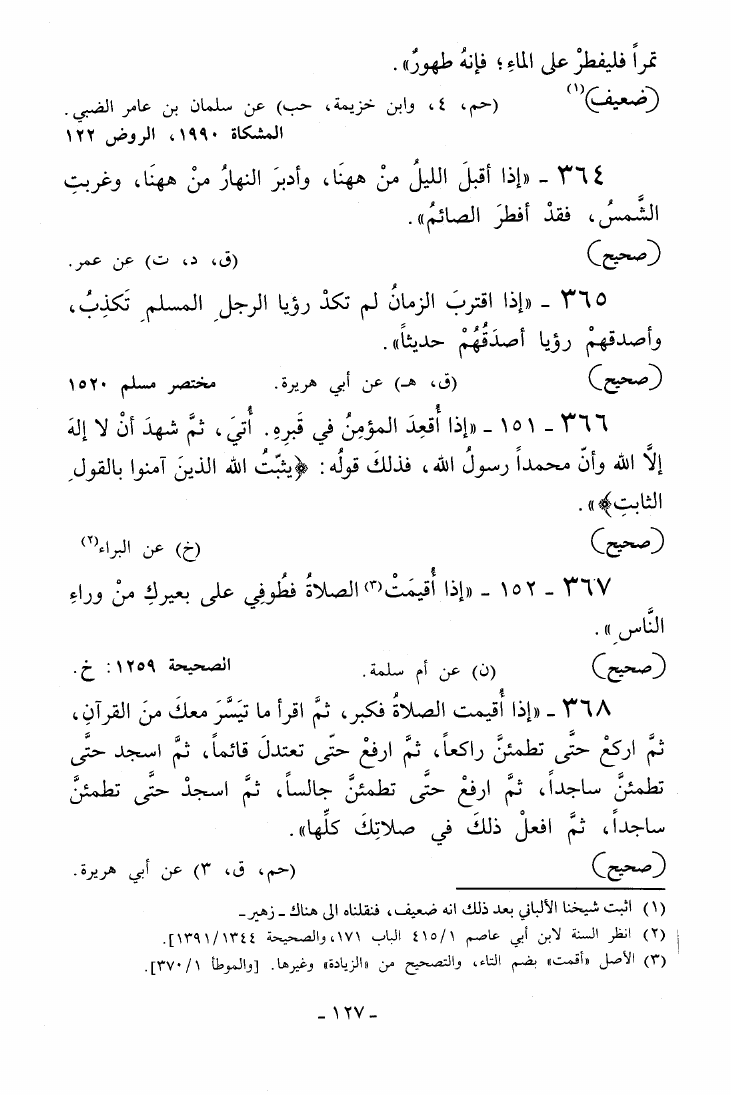 تمراً فليفطرْ على الماءِ؛ فإنهُ طهورٌ».
(ضعيف)(١) (حم، ٤، وابن خزيمة، حب) عن سلمان بن عامر الضبي.
المشكاة ١٩٩٠، الروض ١٢٢
٣٦٤ ـ «إذا أقبلَ الليلُ منْ ههنَا، وأدبرَ النهارُ منْ ههنَا، وغربتِ
الشَّمسُ، فقدْ أفطرَ الصائمُ».
(صحيح) (ق، د، ت) عن عمر.
٣٦٥ ـ «إذا اقتربَ الزمانُ لم تكدْ رؤيا الرجلِ المسلمِ تَكذِبُ،
وأصدقهمْ رؤيا أصدَقُهُمْ حديثاً».
(صحيح) (ق، هـ) عن أبي هريرة. مختصر مسلم ١٥٢٠
٣٦٦ ـ ١٥١ ـ «إذا أُقعِدَ المؤمِنُ في قَبرِهِ. أُتيَ، ثمَّ شهدَ أنْ لا إلهَ
إلاَّ الله وأنّ محمداً رسولُ الله، فذلكَ قولُه: ﴿يثبّتُ الله الذينَ آمنوا بالقولِ
الثابتِ﴾».
(صحيح) (خ) عن البراء(٢)
٣٦٧ ـ ١٥٢ ـ «إذا أُقيمَتْ(٣) الصلاةُ فطُوفِي على بعيركِ منْ وراءِ
النَّاسِ».
(صحيح) (ن) عن أم سلمة. الصحيحة ١٢٥٩: خ.
٣٦٨ ـ «إذا أُقيمت الصلاةُ فكبر، ثمَّ اقرأ ما تيَسَّرَ معكَ منَ القرآنِ،
ثمَّ اركعْ حتَّى تطمئنَّ راكعاً، ثمَّ ارفعْ حتّى تعتدلَ قائماً، ثمَّ اسجد حتَّى
تطمئنَّ ساجداً، ثمَّ ارفعْ حتَّى تطمئنَّ جالساً، ثمَّ اسجدْ حتَّى تطمئنَّ
ساجداً، ثمَّ افعلْ ذلكَ في صلاتِكَ كلِّها».
(صحيح) (حم، ق، ٣) عن أبي هريرة.
(١) اثبت شيخنا الألباني بعد ذلك انه ضعيف، فنقلناه الى هناك ـ زهير ـ
(٢) انظر السنة لابن أبي عاصم ٤١٥/١ الباب ١٧١، والصحيحة ١٣٩١/١٣٤٤].
(٣) الأصل «أقمت» بضم التاء، والتصحيح من «الزيادة» وغيرها. [والموطأ ٣٧٠/١].
ـ ١٢٧ ـ